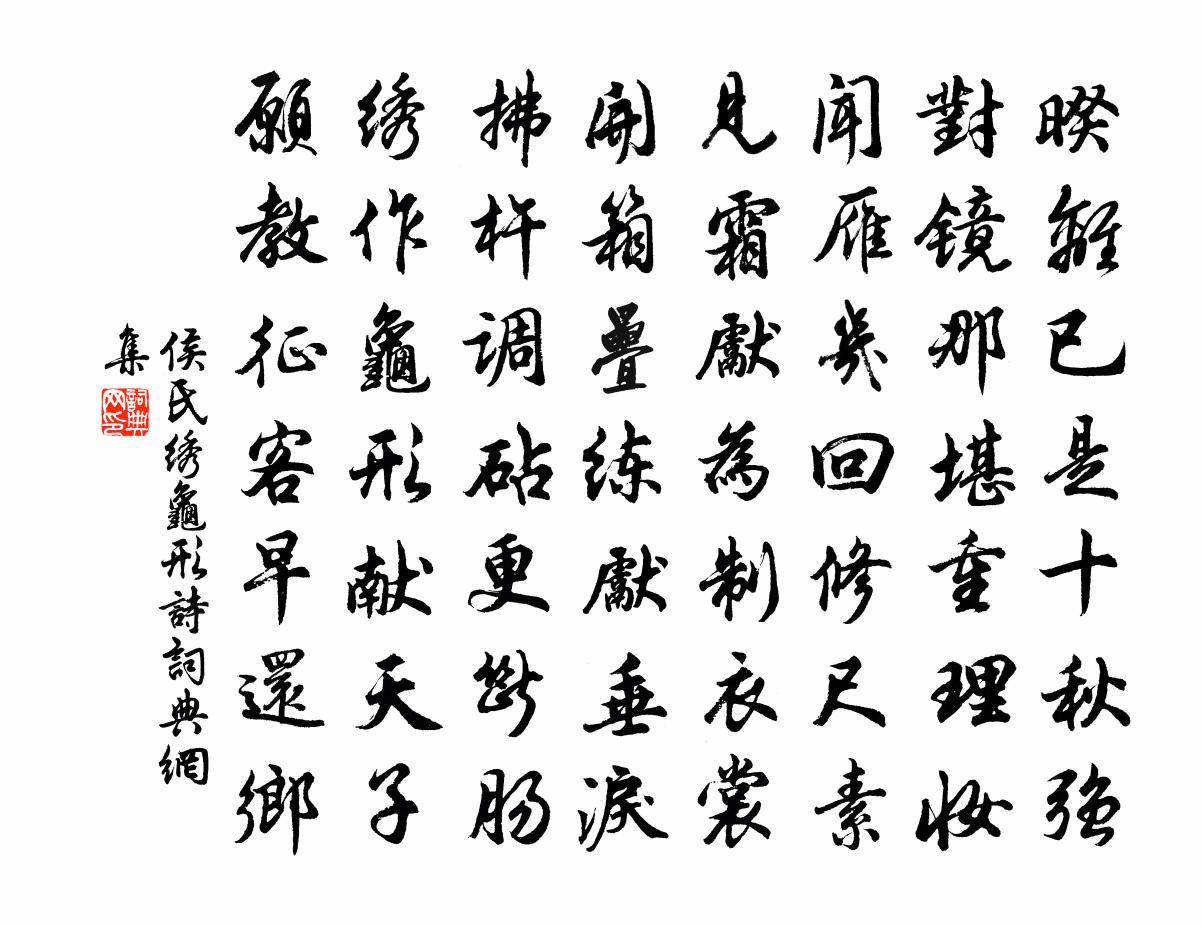 暌離已是十秋強
對鏡那堪重理妝
聞雁幾回修尺素
見霜獻為制衣裳
開箱疊練獻垂淚
拂杵調砧更斷腸
绣作龜形献天子
願教征客早還鄉
侯氏绣龜形詩詞典網
集
詞典
网印